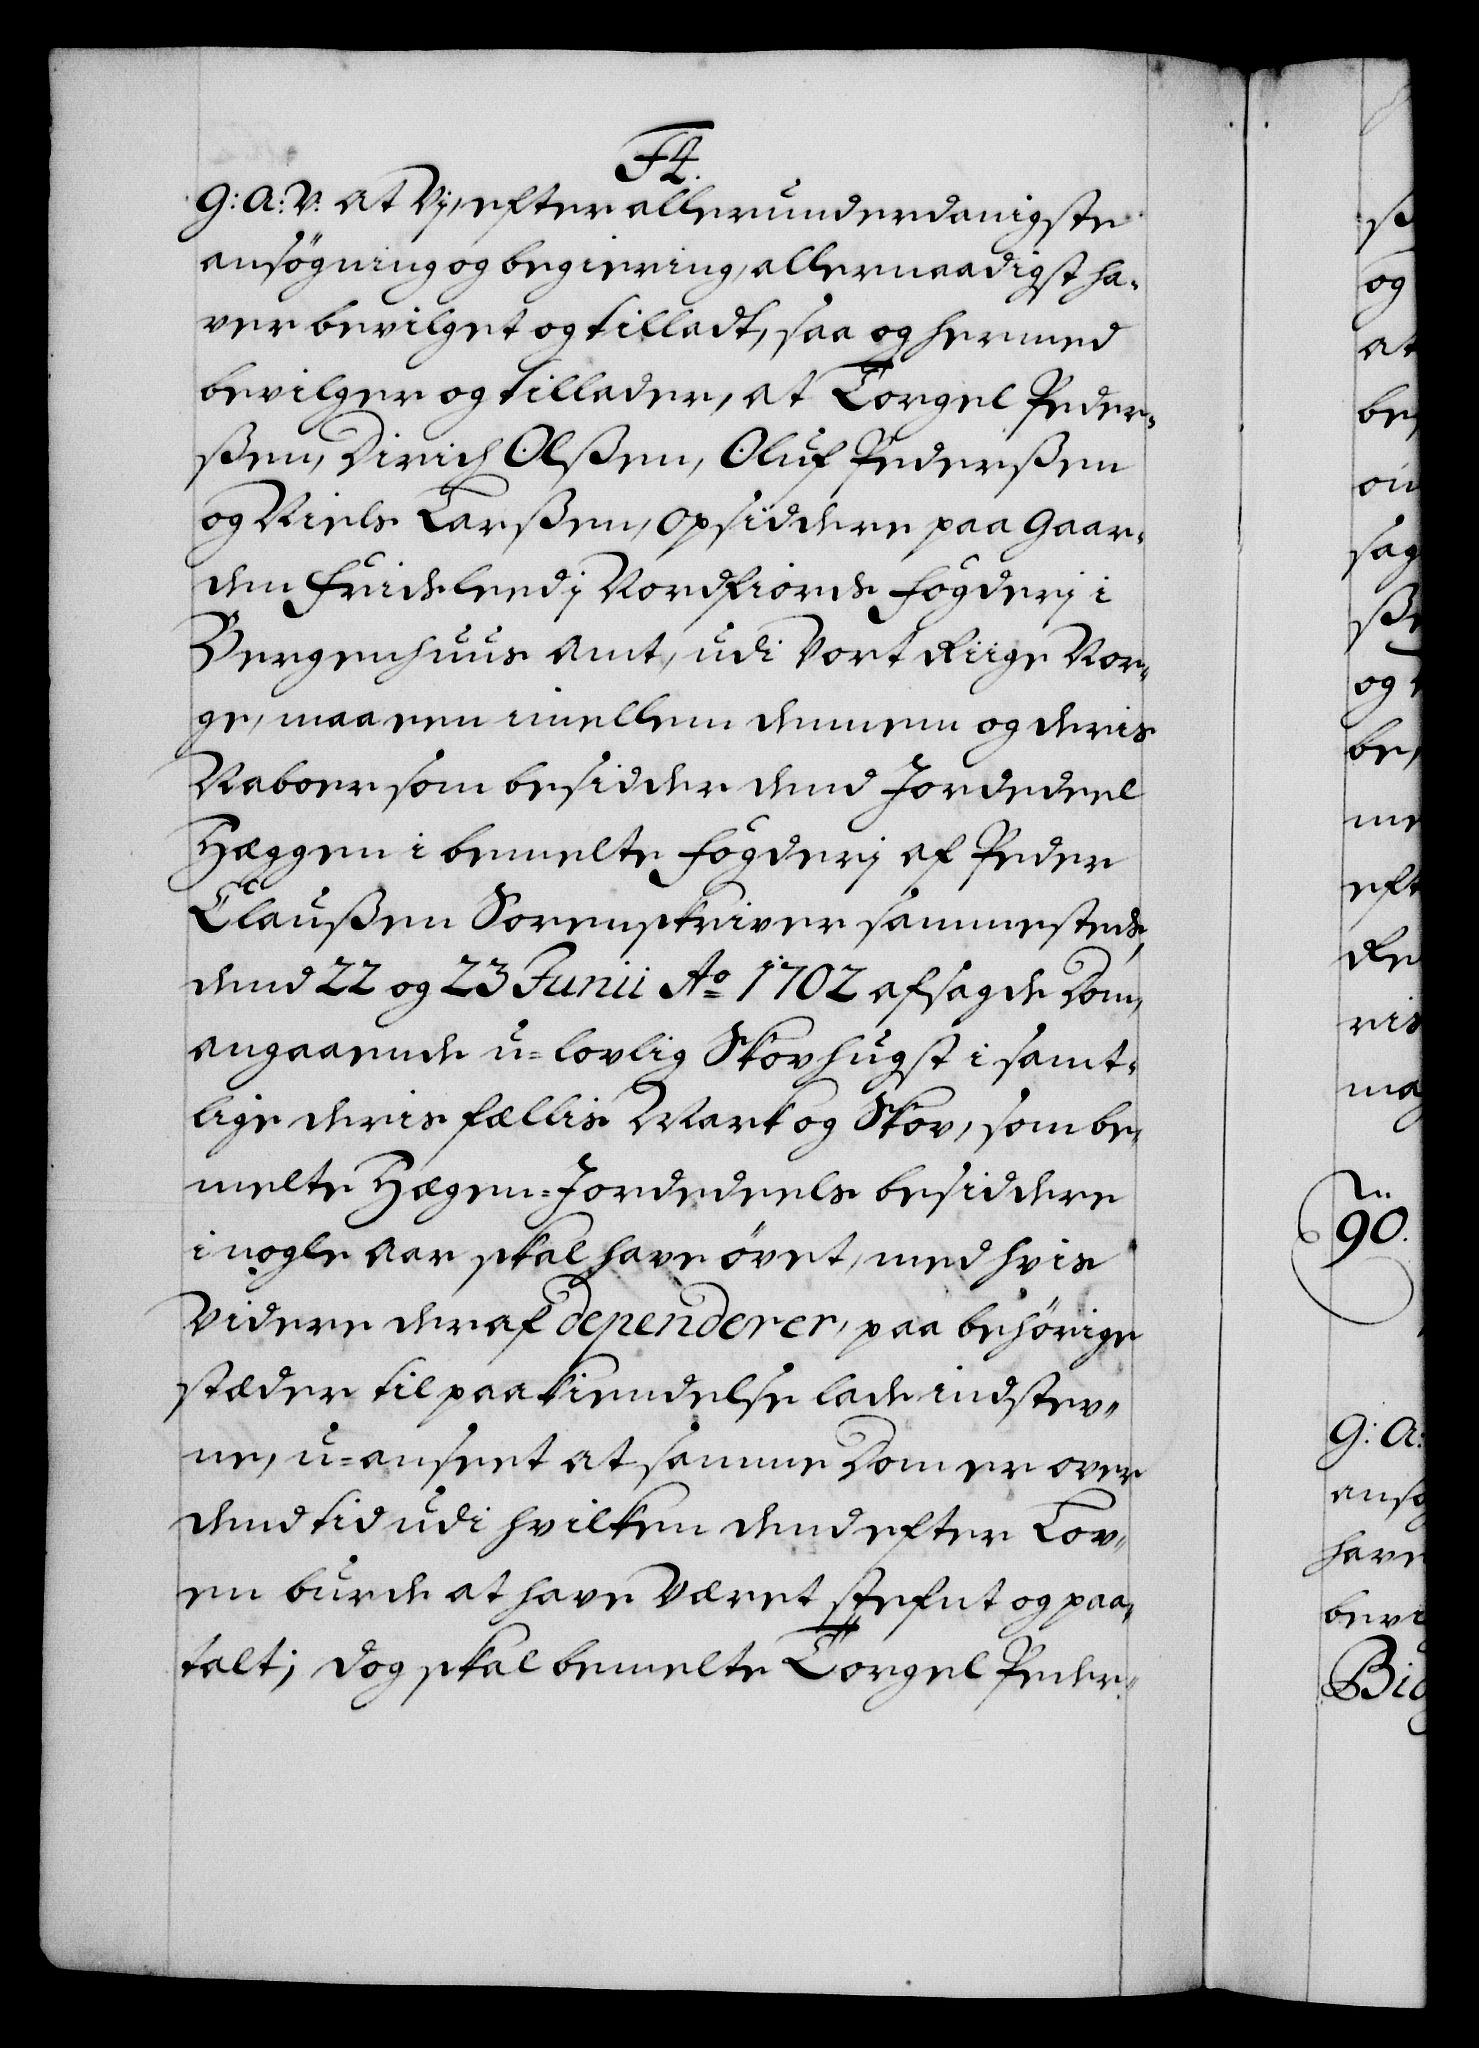 F4.
G: A: V: At Vj, efter allerunderdanigste
ansögning og begiering, allernaadigst ha-
ver bevilget og tilladt, saa og hermed
bevilger og tillader, at Torgel Peder-
ßen, Dirich Olßen, Oluf Pederßen
og Niels Larßen, Opsiddere paa Gaar-
den Friidsleed j Nordfiords fogderj i
Bergenhuus Amt, udi Vort Riige Nor-
ge, maa een imellem dennem og deris
Naboer som besidder dend Jordedeel
Hæggen i bemelte fogderj af Peder
Claußen Sorenskriver sammesteds,
dend 22 og 23 Junii Ao 1702 afsagde Dom,
angaaende u=lovlig Skovhugst i samt-
lige deris fællis Mark og Skov, som be-
melte Hægen=Jordedeels besiddere
i nogle Aar skal have övet, med hvis
Videre deraf dependerer, paa behörige
stæder til paakiendelse lade indstev-
ne, u=anseet at samme Dom er over
dend tid udi hvilken dend efter Lov-
en burde at have Været stefnt og paa-
talt; dog skal bemelte Torgel Peder-
og
at
90.
G: A:
have